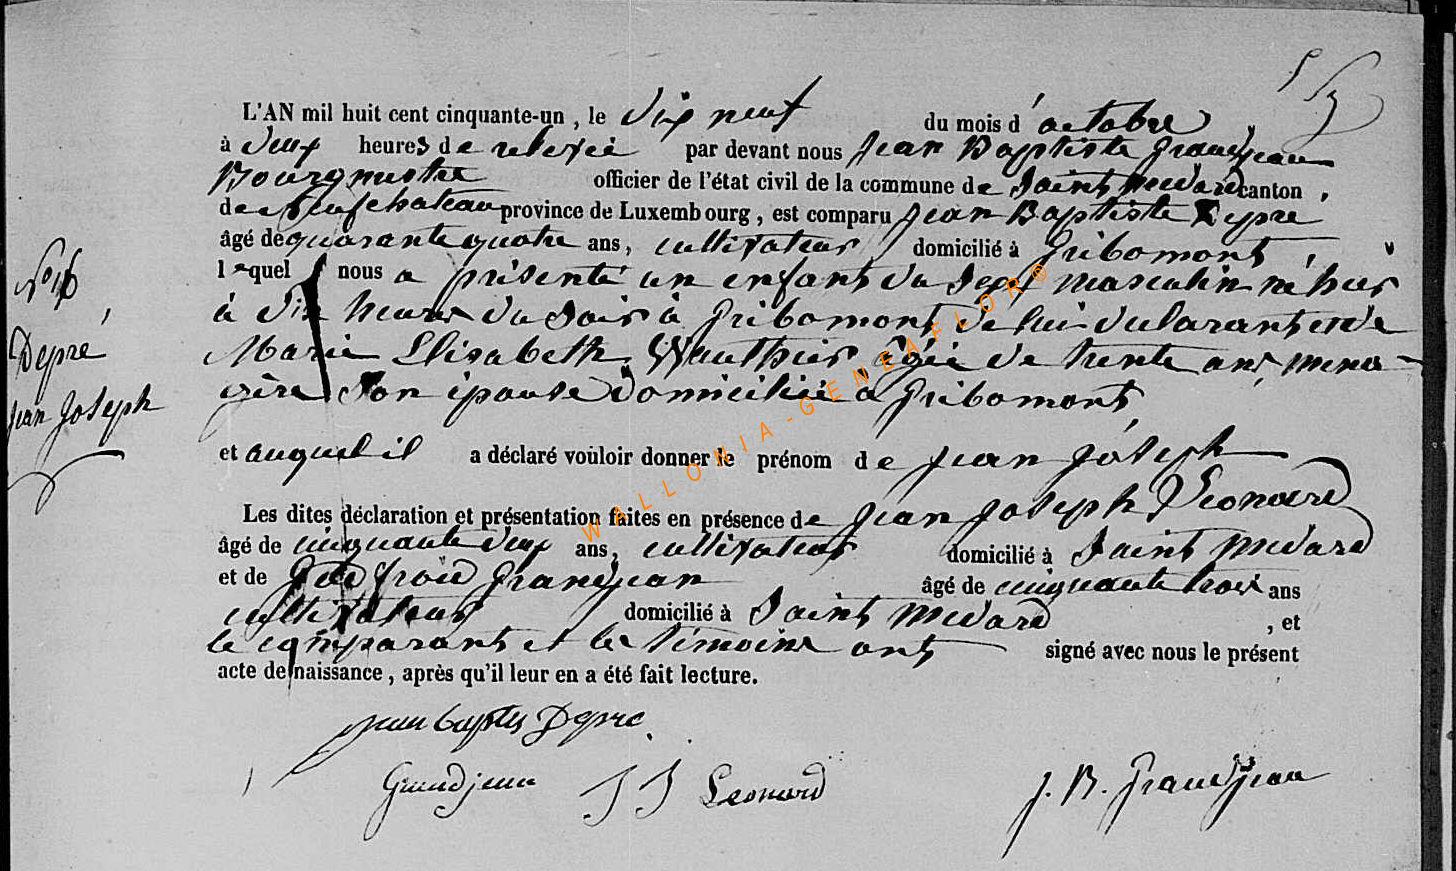 L'AN mil huit cent cinquante-un, le dix neuf du mois d'octobre,
à deux heures de relevée par devant nous Jean Baptiste Grandjean
Bourgmestre officier de l'état civil de la commune de Saint Medard canton,
de Neufchateau province de Luxembourg, est comparu Jean Baptiste Depre
âgé de quarante quatre ans, cultivateur, domicilié à Gribomont,
lequel nous a présenté un enfant du sexe masculin né hier
à dix heures du soir à Gribomont de lui declarant et de
Marie Elisabeth Wauthier, âgée de trente ans, mena-
gère son épouse domiciliée à Gribomont,
et auquel il a déclaré vouloir donner le prénom de Jean Joseph
Les dites déclaration et présentation faites en présence de Jean Joseph Leonard
âgé de cinquante deux ans, cultivateur domicilié à Saint Medard
et de Godefroid Grandjean âgé de cinquante trois ans
cultivateur domicilié à Saint Medard, et
le comparant et les témoins ont signé avec nous le présent
acte de naissance, après qu'il leur en a été fait lecture.
Depré
Jean Joseph
Jean baptiste Depre
Grandjean JJ Leonard J. B. Grandjean
WALLONIA-GENEAFLOR©